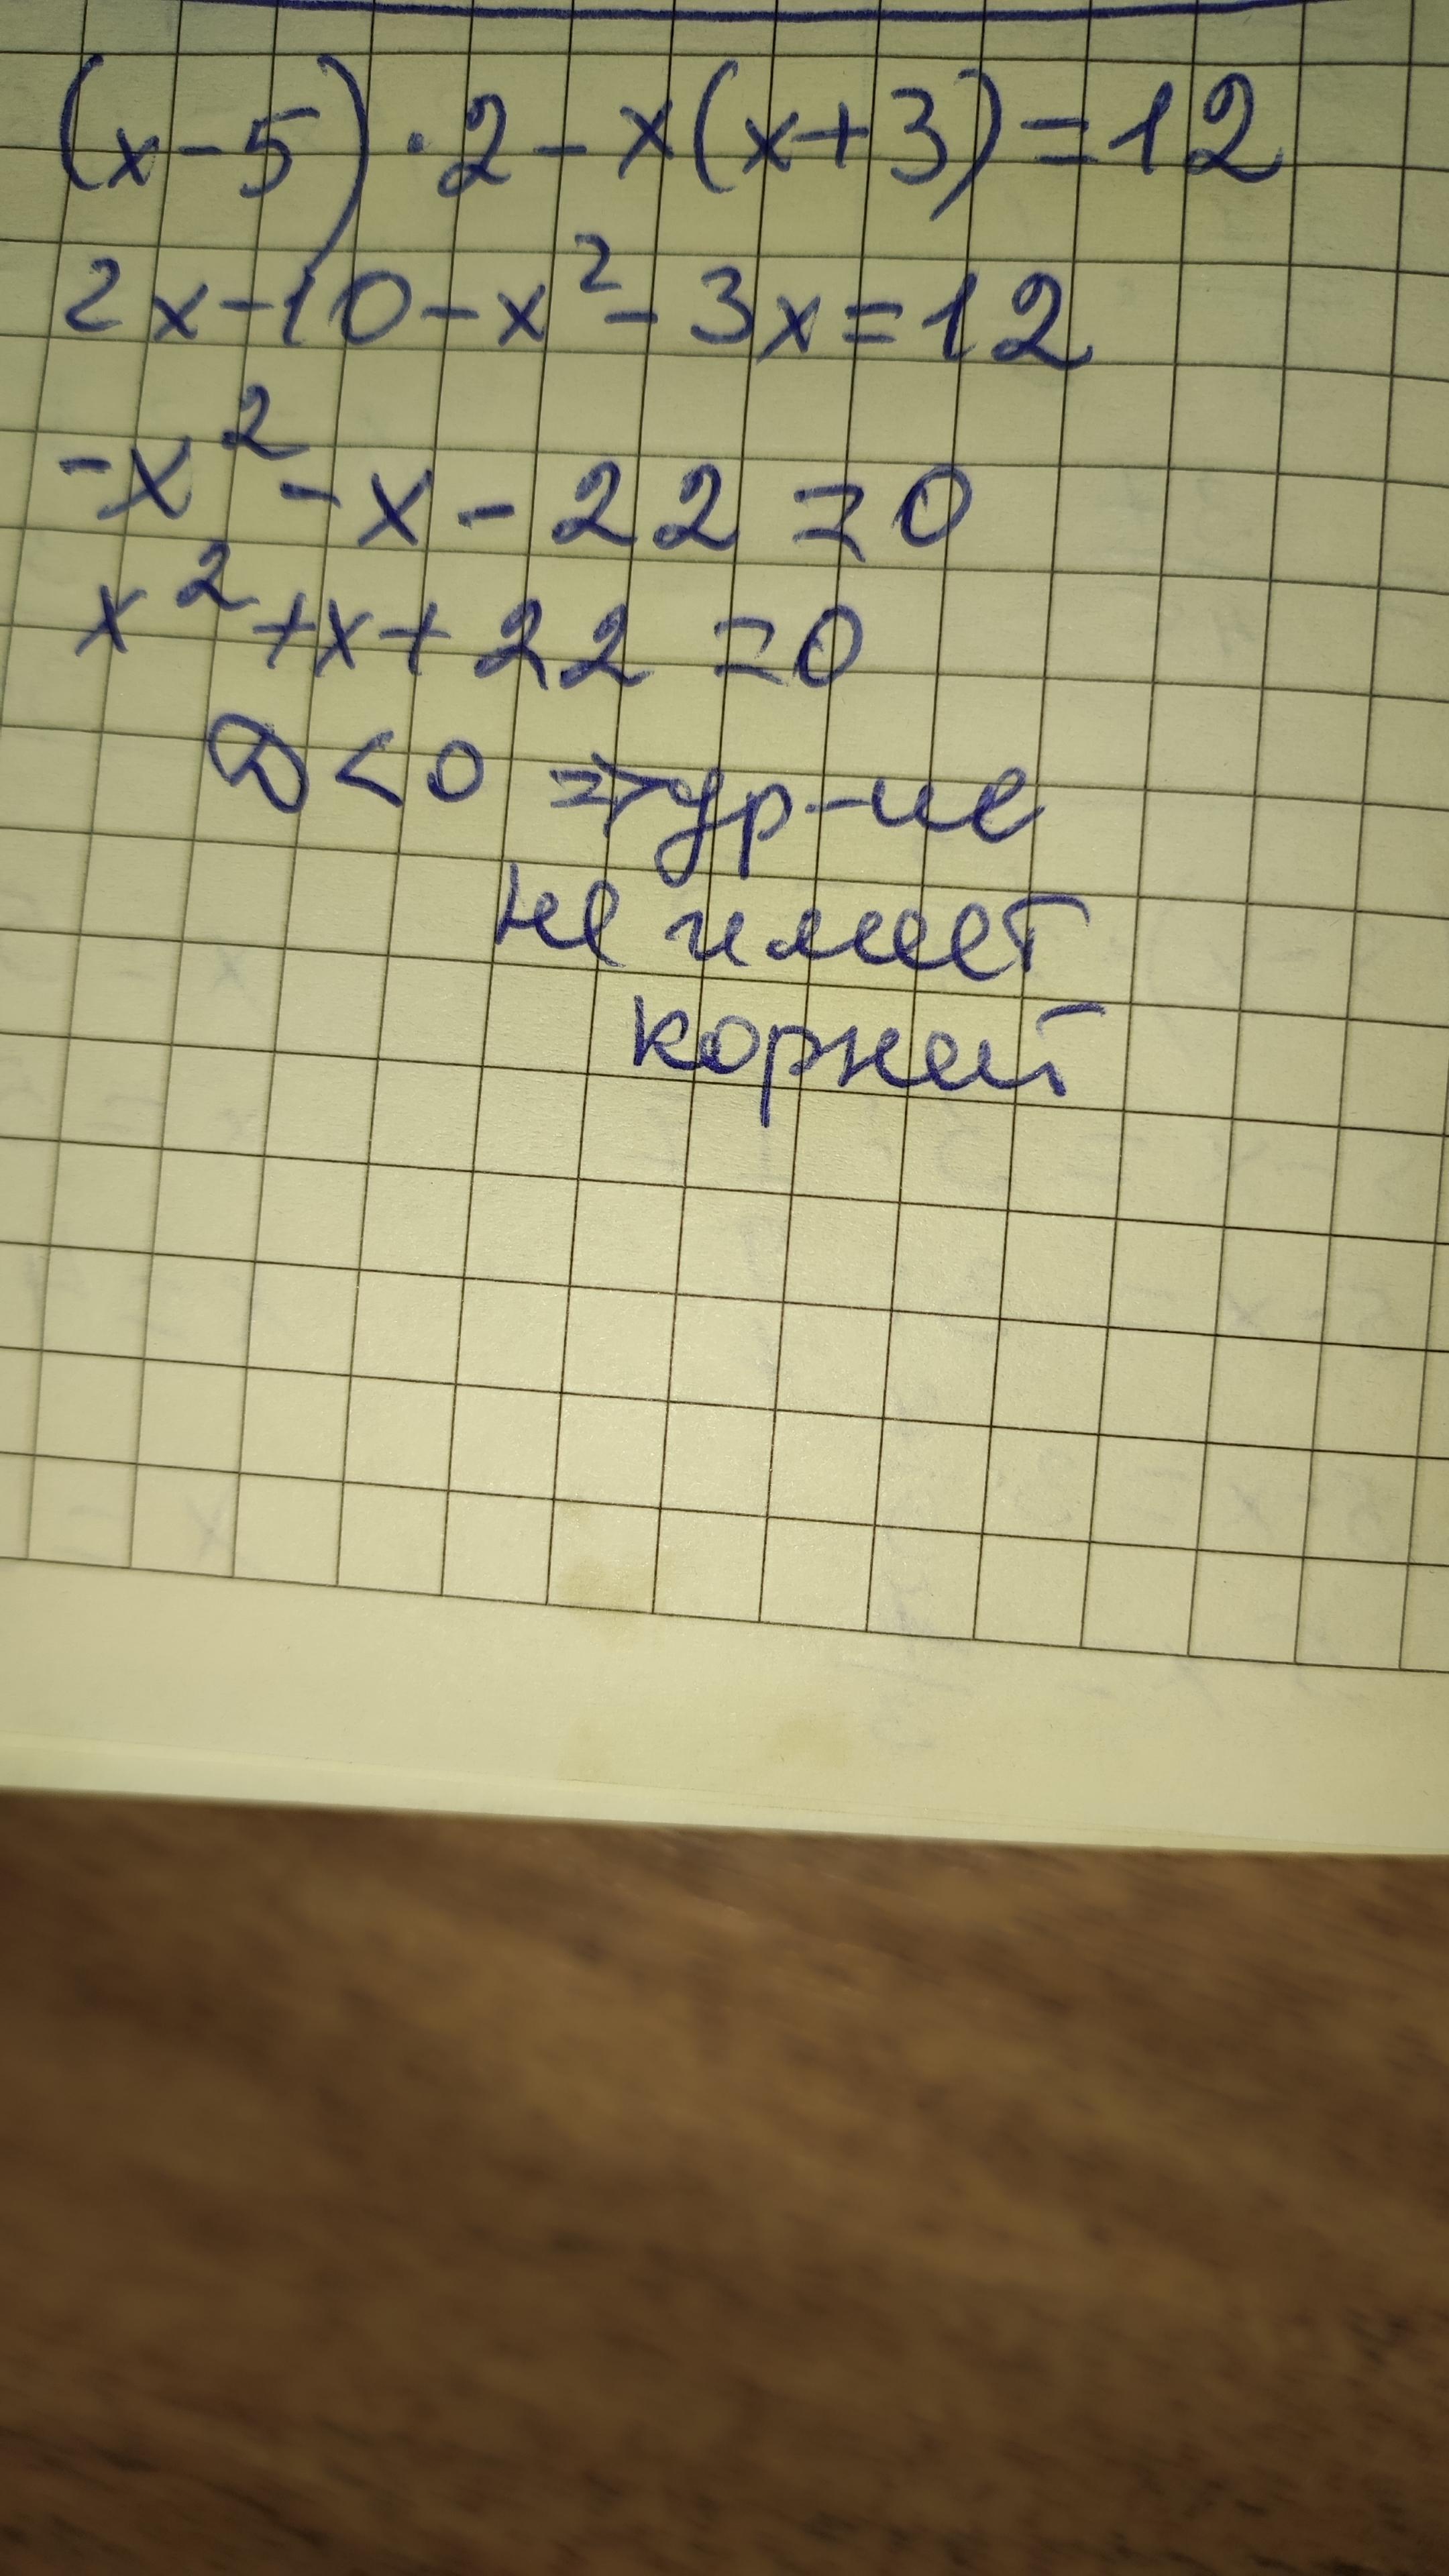 (x-5)·2-x(x+3)=12
2x-10-x²-3x=12
-x²-x-22=0
x²+x+22=0
D<0 ⇒ ур-ие
не имеет
корней